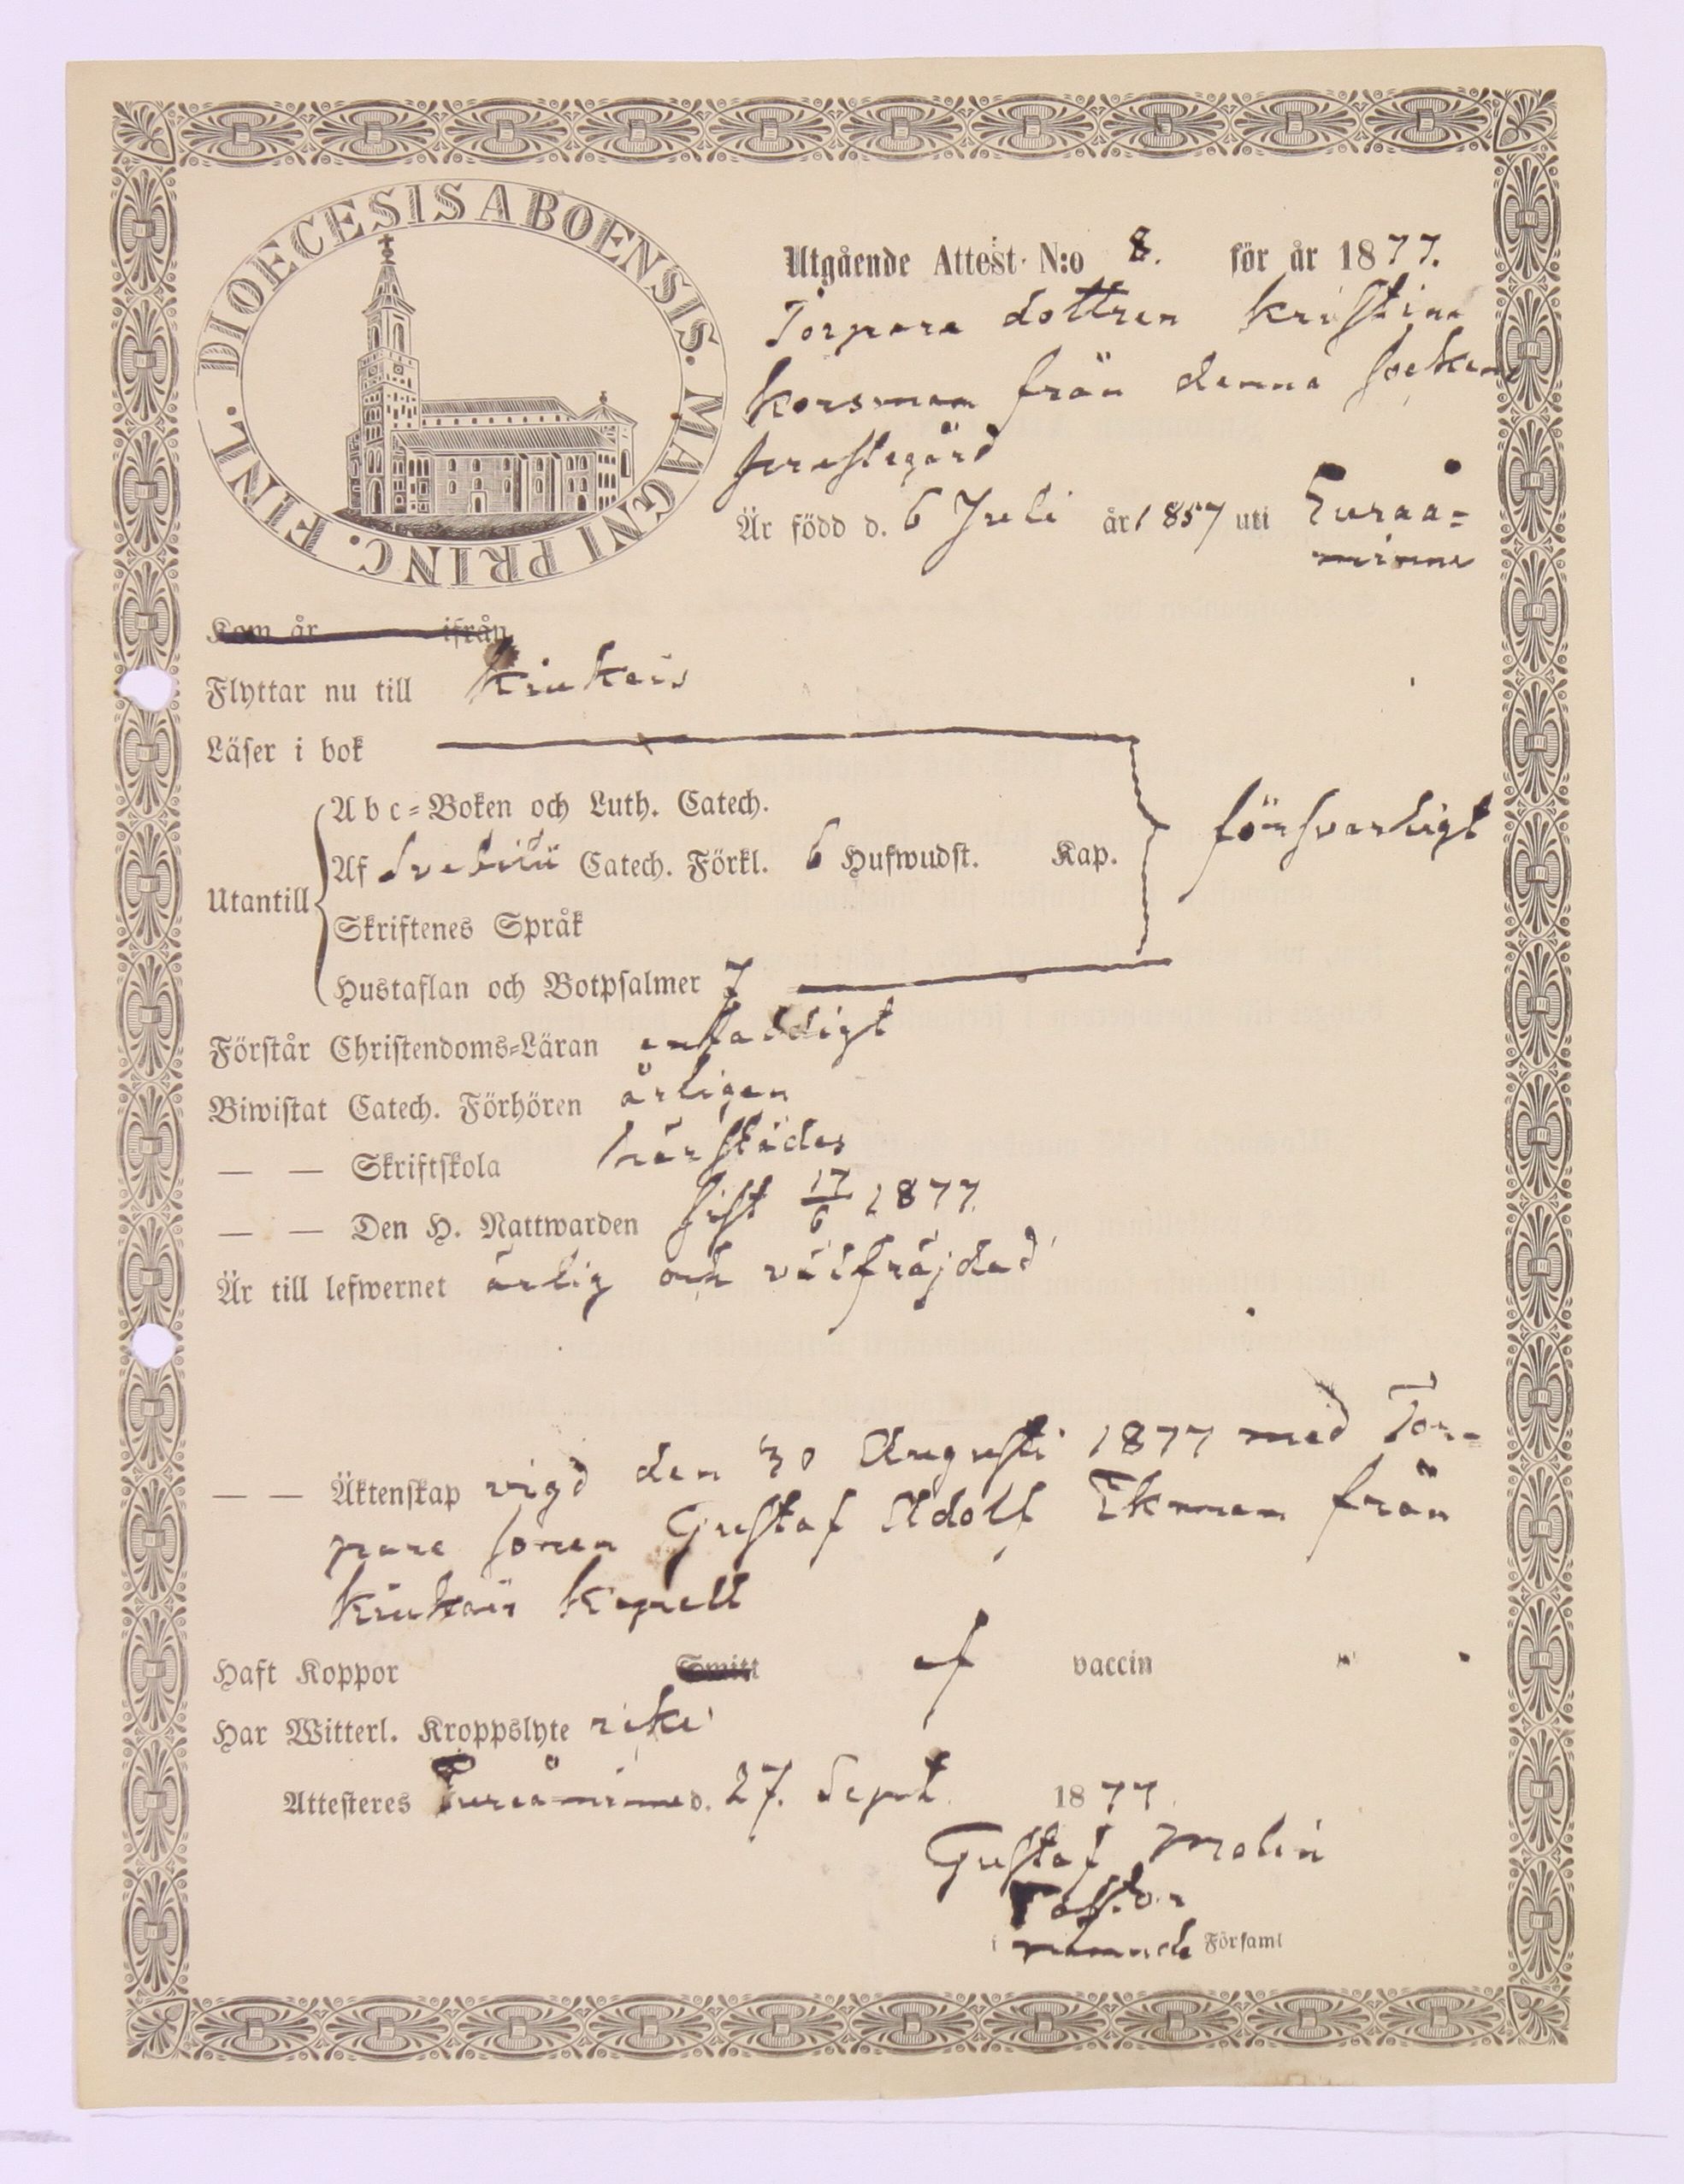 DIOECESIS ABOENSIS. MAGNI PRINC. FINL.
Utgående Attest N:o 8. för år 1877.
Torpare dottren Kristina
Korsman från denna Sockens
prestegård
Är född d. 6 Juli år 1857 uti Euraå=
minne
Kom år ifrån
Flyttar nu till Kiukais
Läser i bok
Abc=Boken och Luth. Catech.
försvarligt
Utantill Af Svebilii Catech. Förkl. 6 Hufwudst. Kap.
Skriftenes Språk
Hustaflan och Botpsalmer 7
Förstår Christendoms=Läran enfaldigt
Biwistat Catech. Förhören årligen
— — Skriftskola härstädes
— — Den H. Nattwarden sist 17/6 1877.
Är till lefwernet ärlig och välfräjdad
— — Äktenskap vigd den 30 Augusti 1877 med Tor=
pare sonen Gustaf Adolf Ekman från
Kiukais Kapell
Haft Koppor Smitt af vaccin
Har Witterl. Kroppslyte icke
Attesteres Euraåminne d. 27. Sept. 1877.
Gustaf Molin
Pastor
i Församl